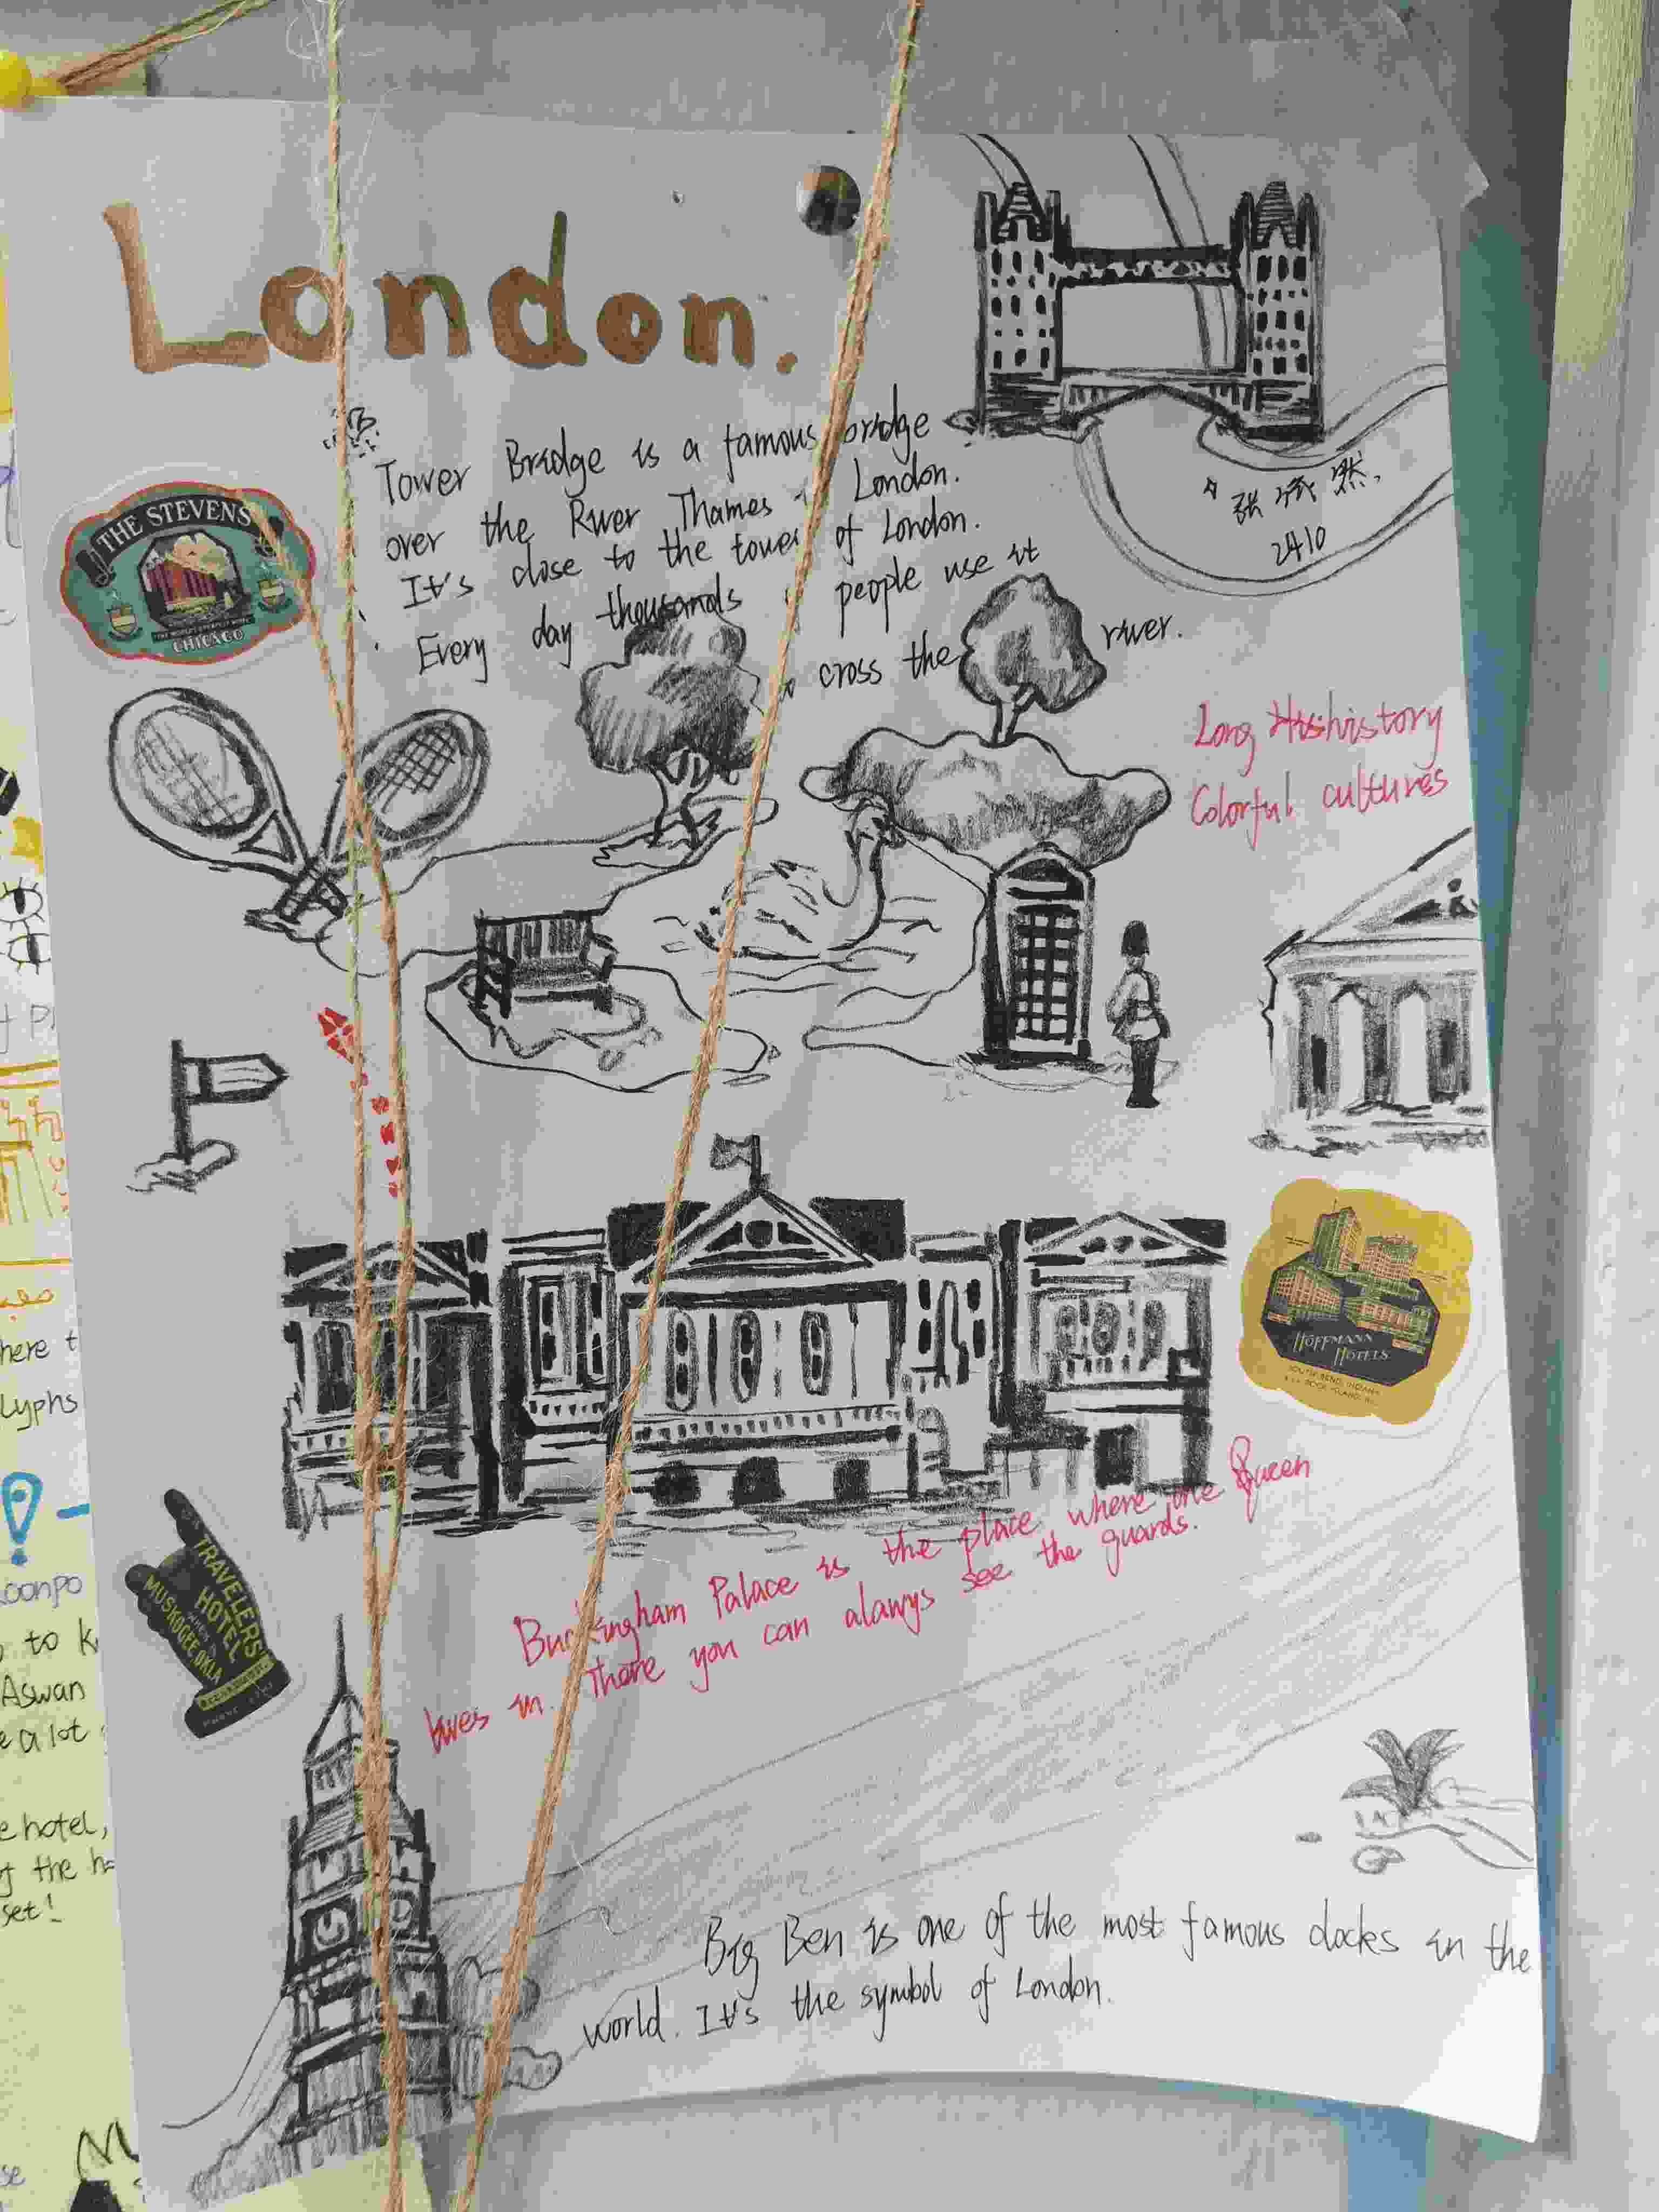 London.
Tower Bridge is a famous bridge
over the River Thames London.
It's close to the tower of London.
Every day thousands people use it
cross the river.
张 然
2410
THE STEVENS
CHICAGO
Long Hishistory
Colorful cultures
HOFFMANN
HOTELS
SOUTH BEND, INDIANA
Buckingham Palace is the place where the Queen
lives in. There you can alawys see the guards.
TRAVELERS
HOTEL
WHEN IN
MUSKOGEE OKLA
Big Ben is one of the most famous clocks in the
world. It's the symbol of London.
here t
lyphs
to k
Aswan
e a lot
e hotel,
of the h
set!